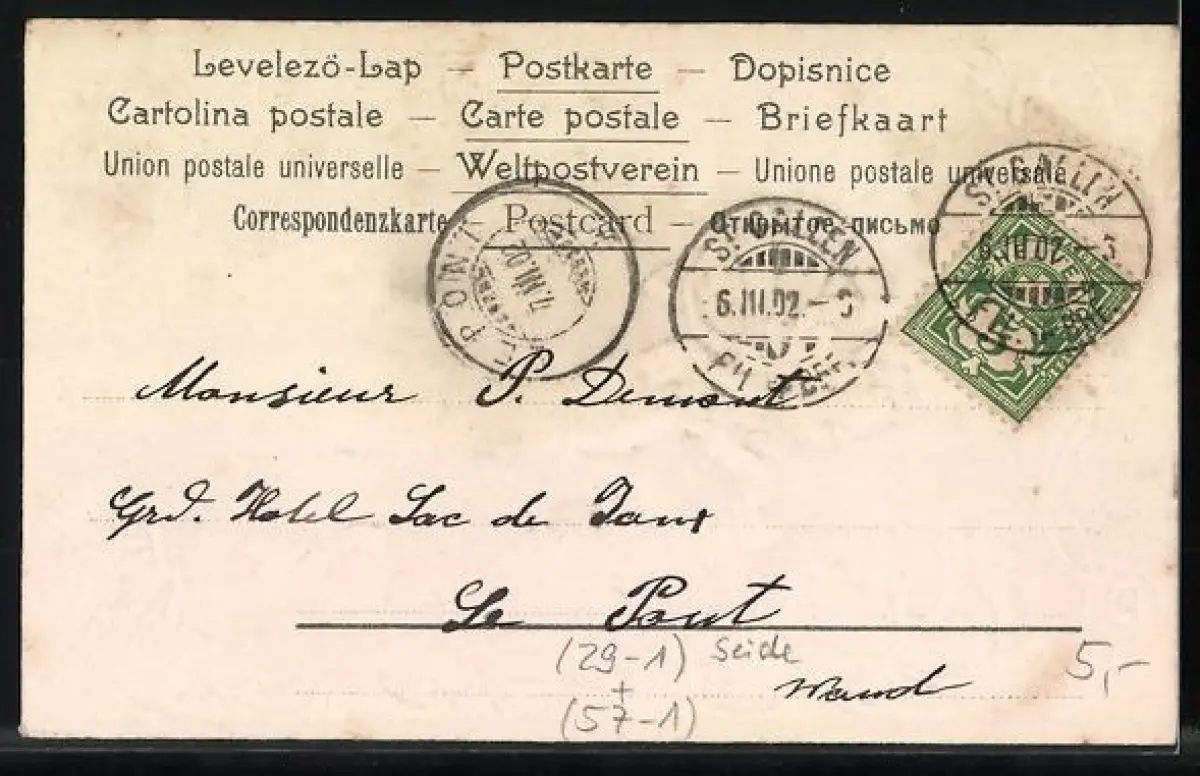 Levelező-Lap — Postkarte — Dopisnice
Cartolina postale — Carte postale — Briefkaart
Union postale universelle — Weltpostverein — Unione postale universale
Correspondenzkarte — Postcard — Открытое письмо
PONT
7.III.02
ST. GALLEN
6.III.02.-3
ST. GALLEN
6.III.02.-3
5
Monsieur P. Demont
Grd. Hotel Lac de Joux
Le Pont
(29-1) Seide
5,-
+
Waud
(57-1)